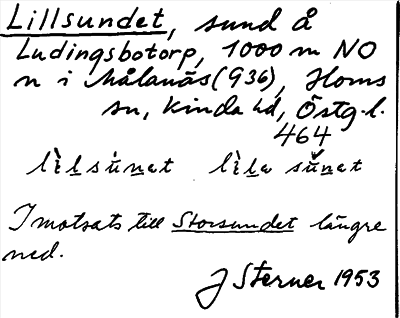 Lillsundet, sund å
Ludingsbotorp, 1000 m NO
n i Målanäs (936), Horns
sn, Kinda hd, Östg. l.
464
lìlsúnet lìle sǔnet
I motsats till Storsundet längre
ned.
J Sterner 1953